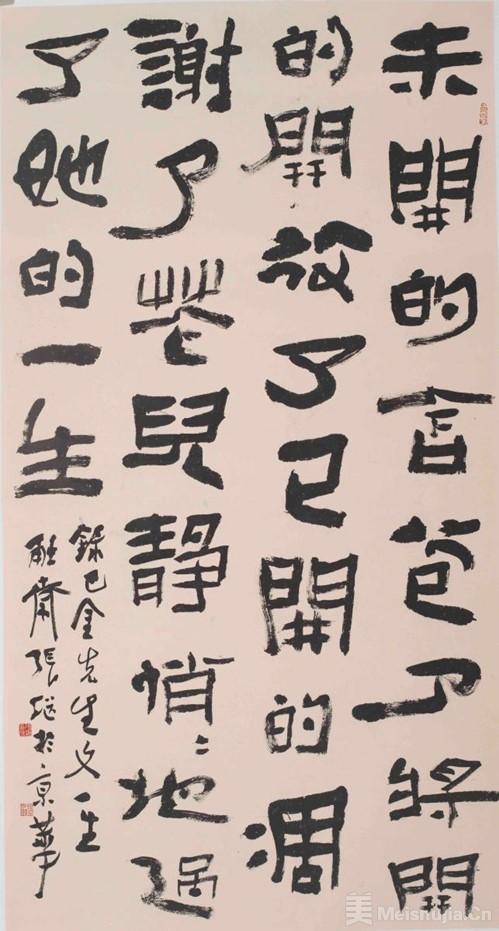 未開的含苞了將開
的開放了已開的凋
謝了花兒靜悄〻地過
了她的一生
錄巴金先生文一生
觚齋張継於京華
美 Meishujia.Cn